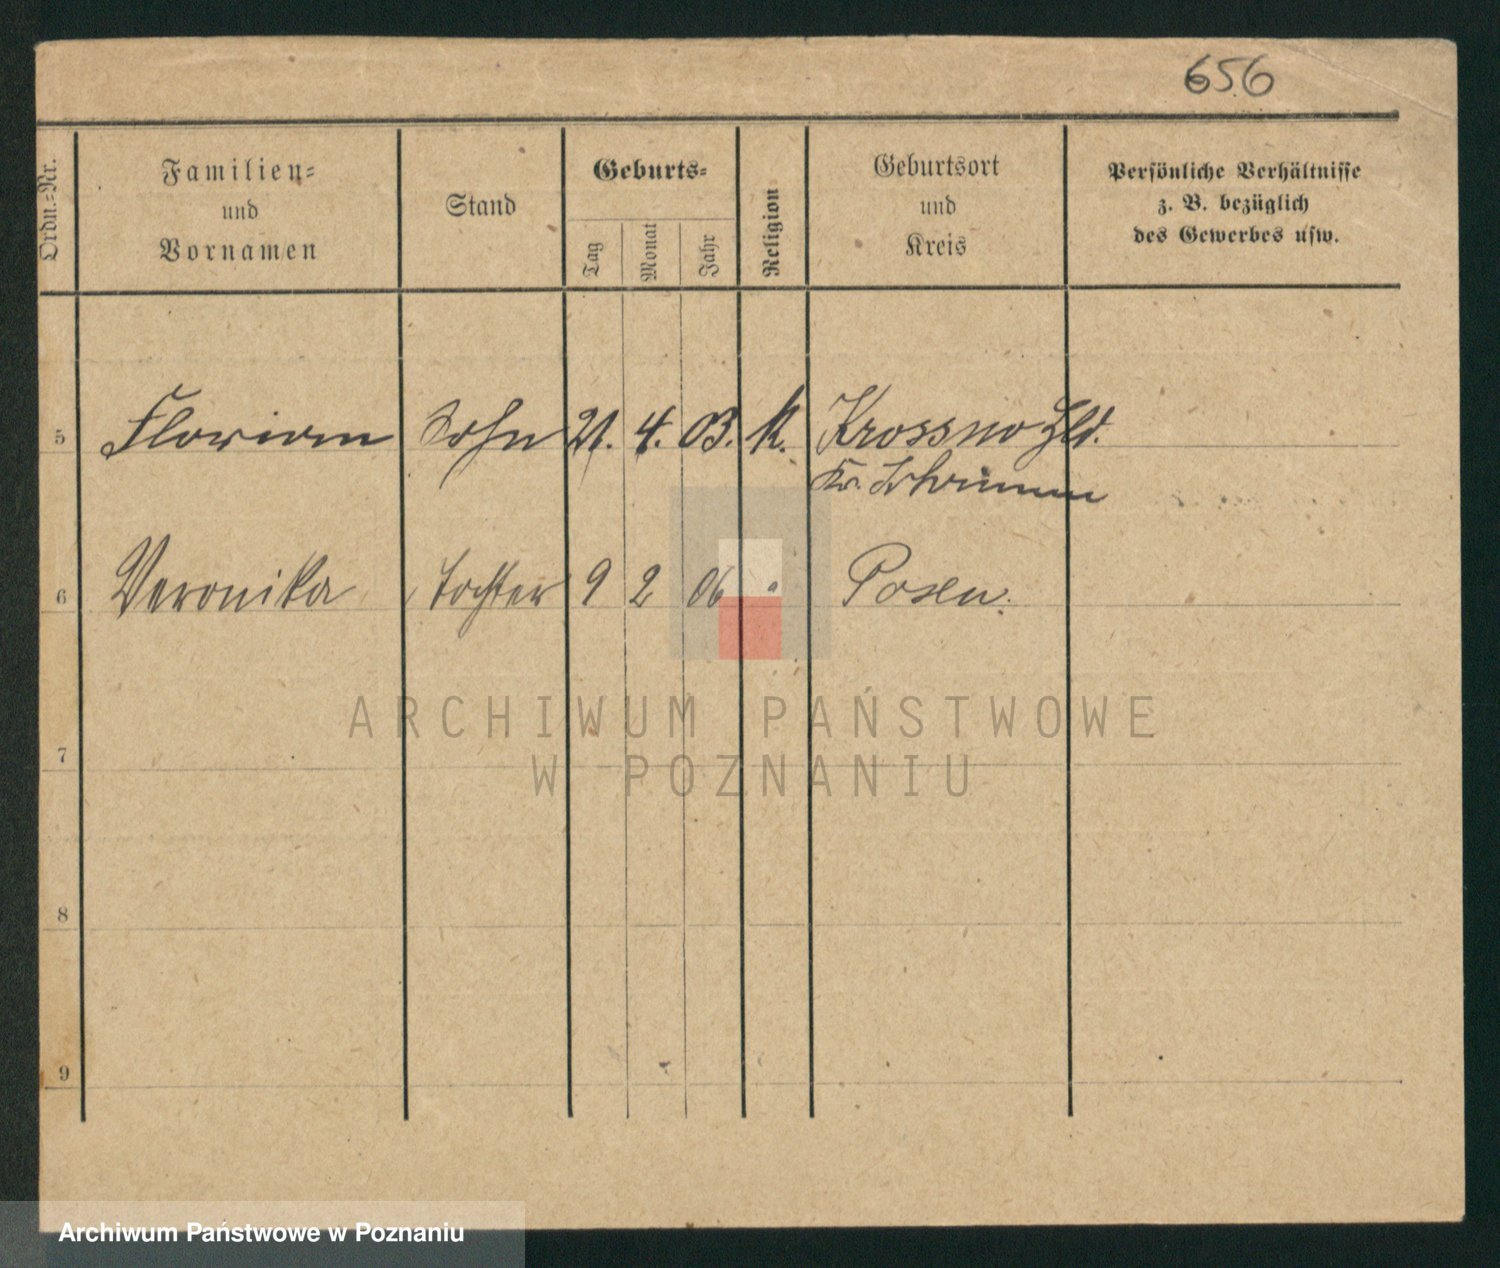 656
Ordn.-Nr.
Familien-
und
Vornamen
Stand
Geburts-
Tag
Monat
Jahr
Religion
Geburtsort
und
Kreis
Persönliche Verhältnisse
z. B. bezüglich
des Gewerbes usw.
5 Florian Sohn 21. 4. 03. K. Krossno Hld.
Kr. Schrimm
6 Veronika Tochter 9 2 06 " Posen.
ARCHIWUM PAŃSTWOWE
W POZNANIU
7
8
9
Archiwum Państwowe w Poznaniu